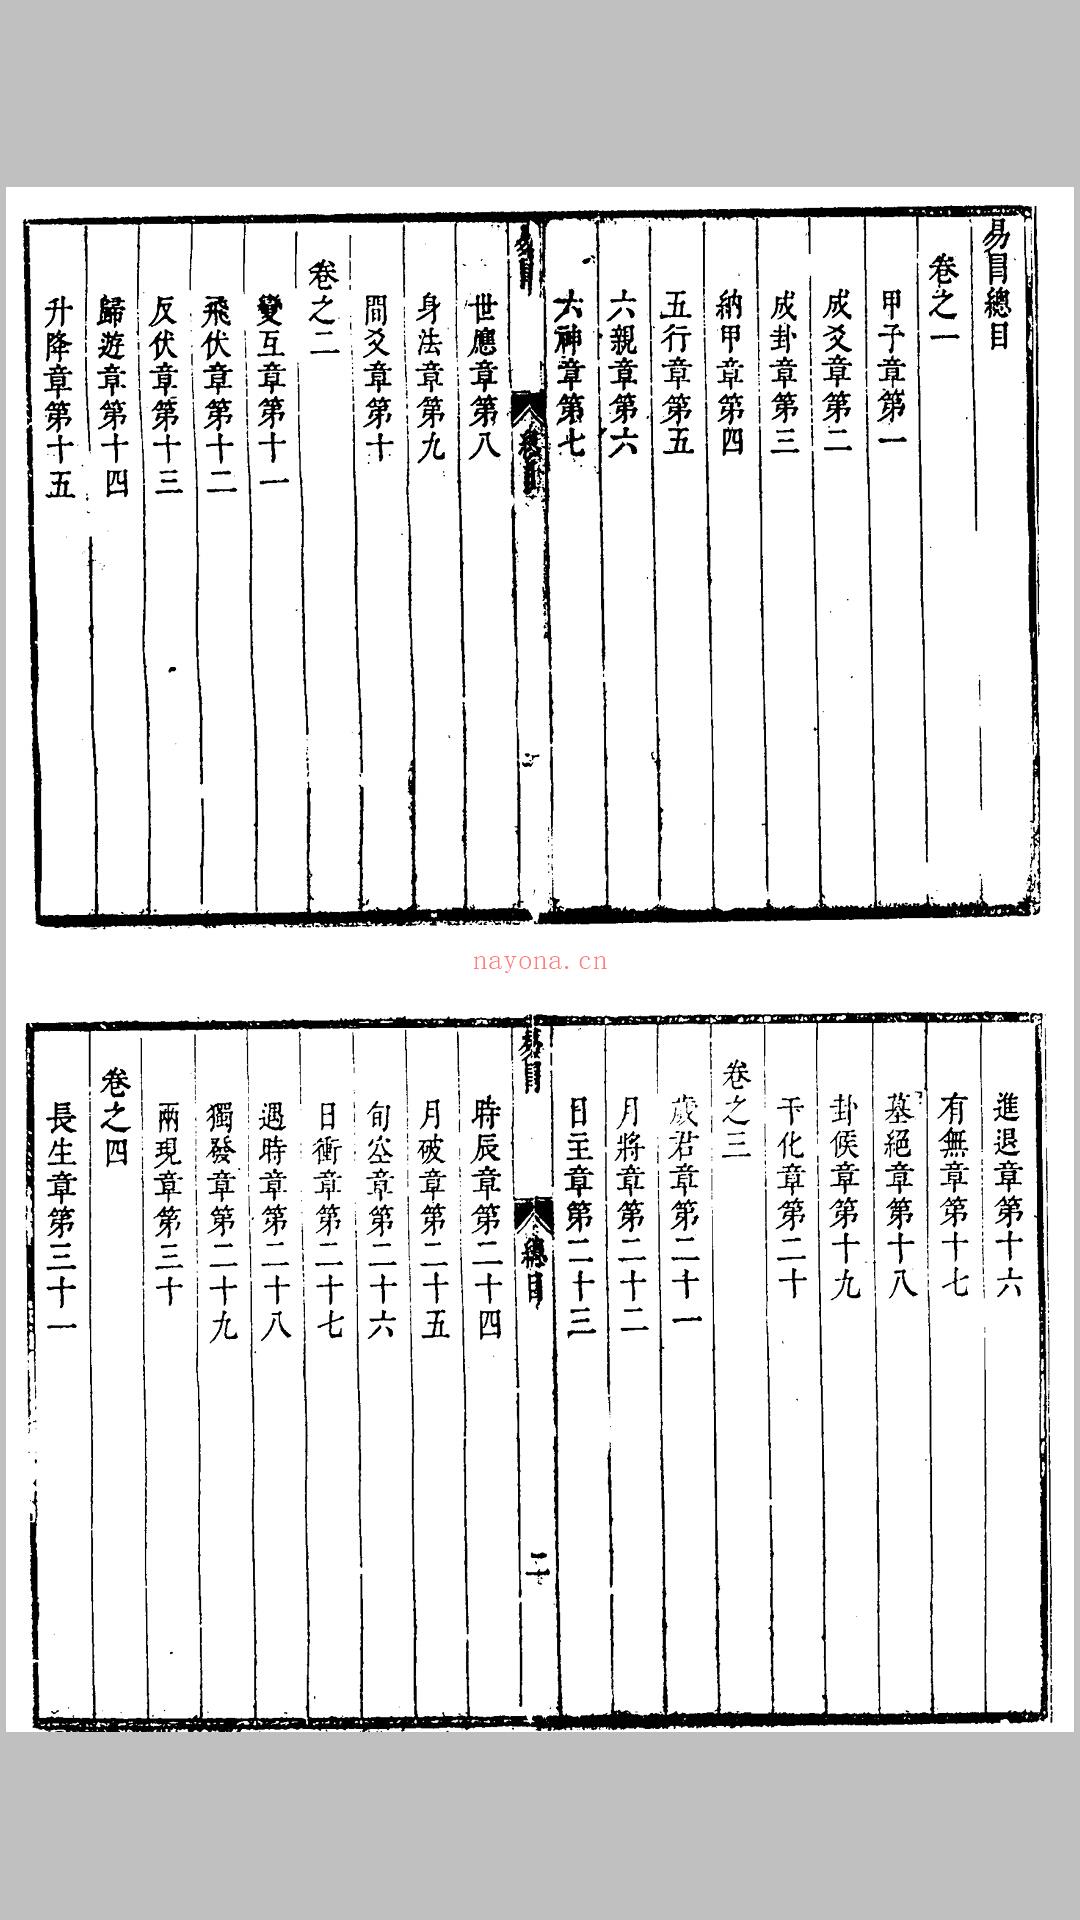 易冒總目
卷之一
甲子章第一
成爻章第二
成卦章第三
納甲章第四
五行章第五
六親章第六
六神章第七
易冒
總目
一
世應章第八
身法章第九
間爻章第十
卷之二
變互章第十一
飛伏章第十二
反伏章第十三
歸遊章第十四
升降章第十五
nayona.cn
進退章第十六
有無章第十七
墓絕章第十八
卦候章第十九
干化章第二十
卷之三
歲君章第二十一
月將章第二十二
日主章第二十三
易冒
總目
二
時辰章第二十四
月破章第二十五
旬空章第二十六
日衝章第二十七
遇時章第二十八
獨發章第二十九
兩現章第三十
卷之四
長生章第三十一